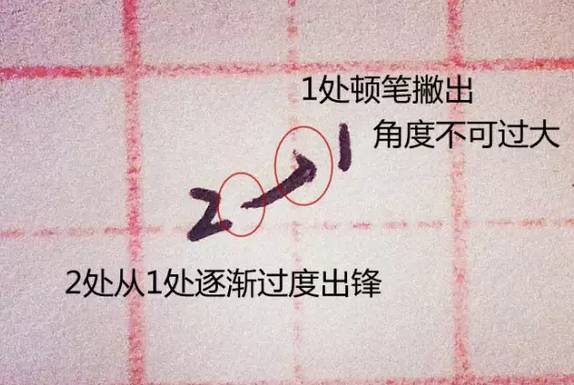 1处顿笔撇出
1
角度不可过大
2
2处从1处逐渐过度出锋